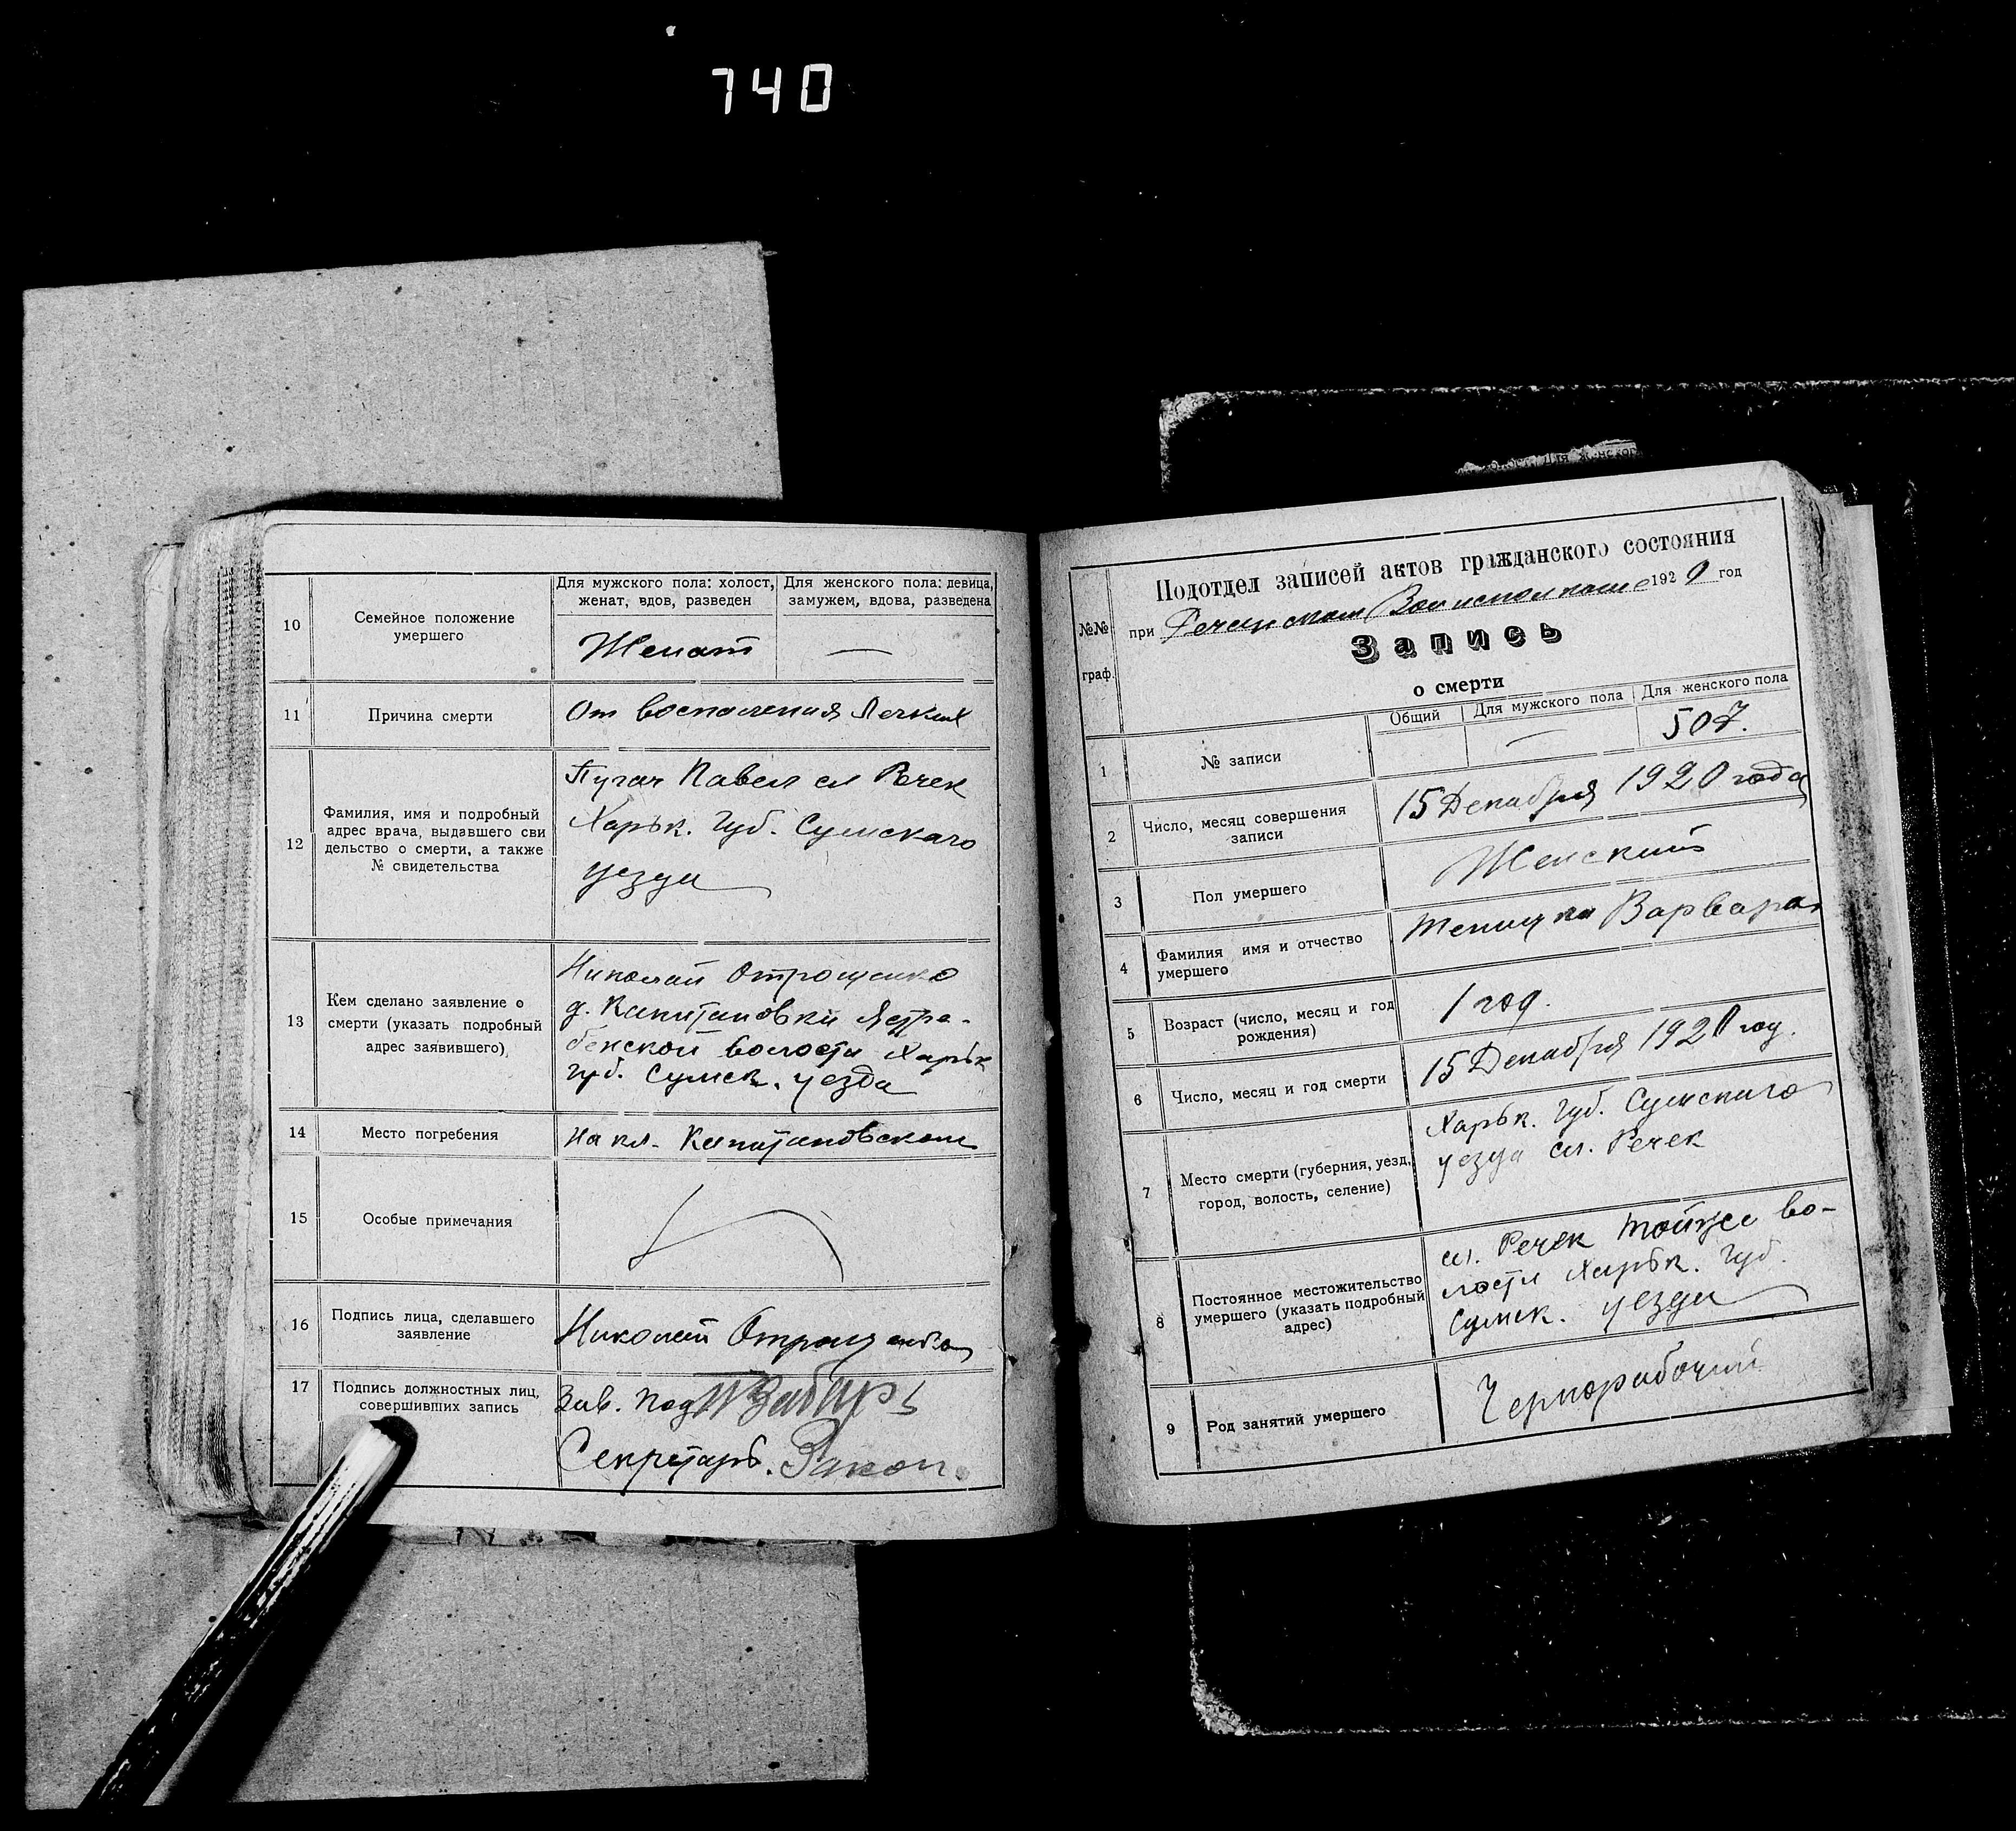 740
10
Семейное положение
умершего
Для мужского пола: холост,
женат, вдов, разведен
Для женского пола: девица,
замужем, вдова, разведена
Женат
—
11
Причина смерти
От воспаления Легких
12
Фамилия, имя и подробный
адрес врача, выдавшего сви
дельство о смерти, а также
№ свидетельства
Пугач Павел сл Речек
Харьк. Губ. Сумскаго
уезда
13
Кем сделано заявление о
смерти (указать подробный
адрес заявившего)
Николай Отрощенко
д. Капитановки Ястре-
бенской волости Харьк
губ. Сумск. уезда
14
Место погребения
На кл. Капитановском
15
Особые примечания
16
Подпись лица, сделавшего
заявление
Николай Отрощенко
17
Подпись должностных лиц,
совершивших запись
Зав. Под
Секретарь.
№№
граф.
Подотдел записей актов гражданского состояния
при Речанском Волисполкоме 1920 год
Запись
о смерти
Общий
Для мужского пола
Для женского пола
1
№ записи
—
507.
2
Число, месяц совершения
записи
15 Декабря 1920 года
3
Пол умершего
Женский
4
Фамилия имя и отчество
умершего
Варвара
5
Возраст (число, месяц и год
рождения)
1 год.
6
Число, месяц и год смерти
15 Декабря 1920 год.
7
Место смерти (губерния, уезд,
город, волость, селение)
Харьк. губ. Сумскаго
уезда сл. Речек
8
Постоянное местожительство
умершего (указать подробный
адрес)
сл. Речек тойже во-
лости Харьк. губ.
Сумск. уезда
9
Род занятий умершего
Чернорабочий